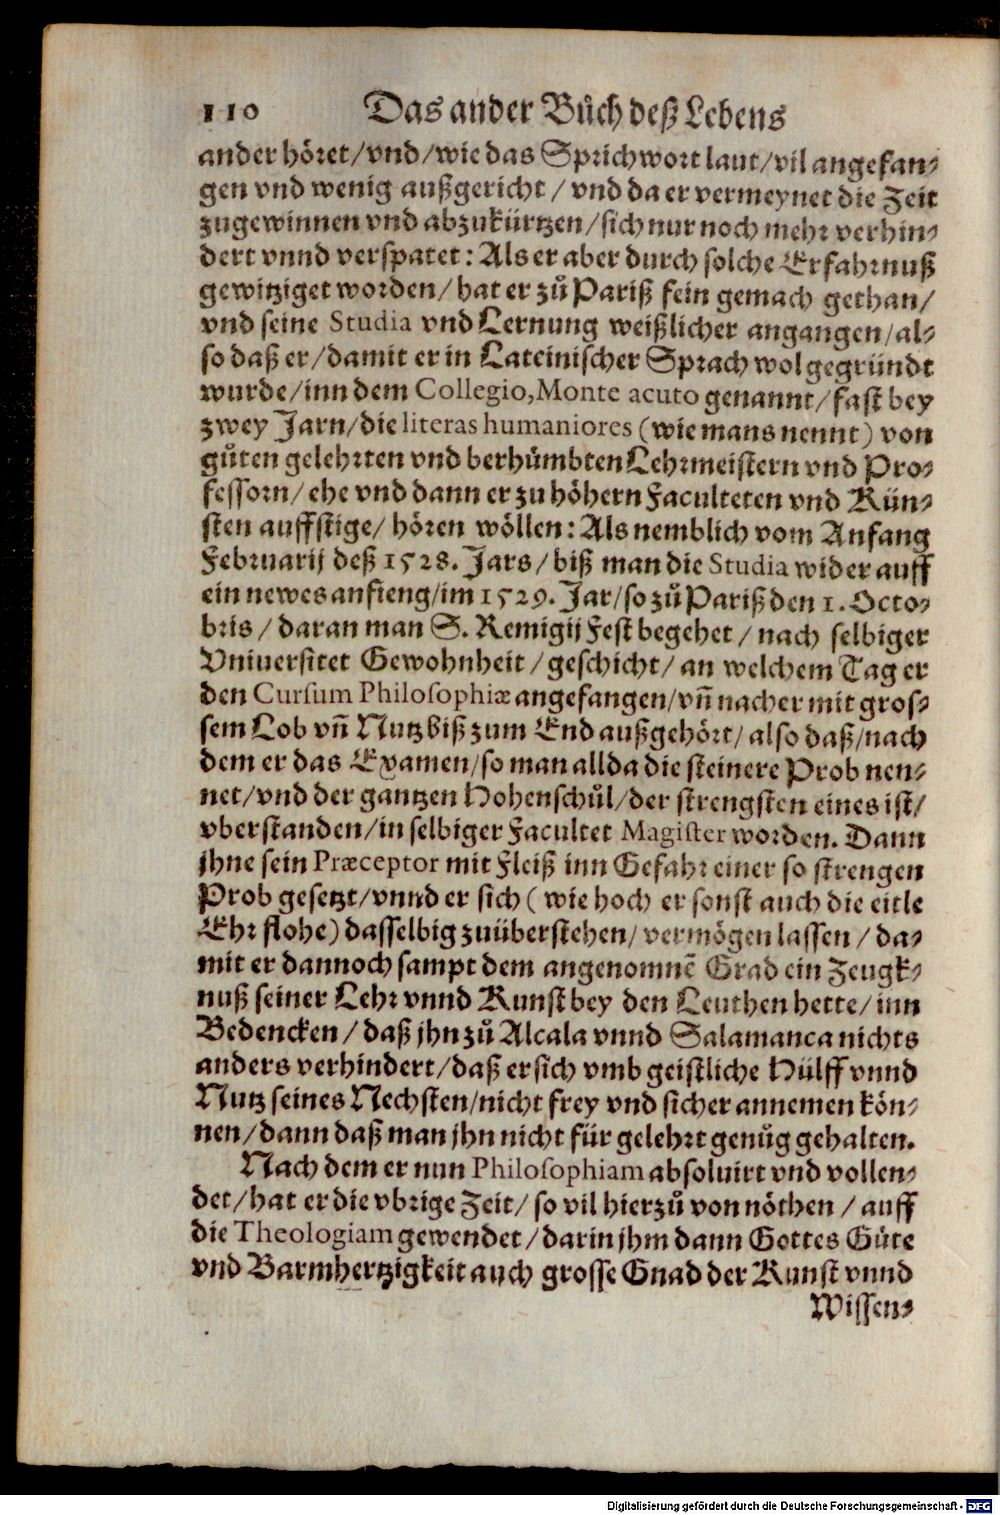 110 Das ander Bůch deß Lebens
ander höret/vnd/wie das Sprichwort laut/vil angefan⸗
gen vnd wenig außgericht/vnd da er vermeynet die Zeit
zugewinnen vnd abzukürtzen/sich nur noch mehr verhin⸗
dert vnnd verspatet: Als er aber durch solche Erfahrnuß
gewitziget worden/hat er zů Pariß fein gemach gethan/
vnd seine Studia vnd Lernung weißlicher angangen/al⸗
so daß er/damit er in Lateinischer Sprach wol gegründt
wurde/inn dem Collegio, Monte acuto genannt/fast bey
zwey Jarn/die literas humaniores (wie mans nennt) von
gůten gelehrten vnd berhümbten Lehrmeistern vnd Pro⸗
fessorn/ehe vnd dann er zu höhern Faculteten vnd Kün⸗
sten auffstige/hören wöllen: Als nemblich vom Anfang
Februarij deß 1528. Jars/biß man die Studia wider auff
ein newes anfieng/im 1529. Jar/so zů Pariß den 1. Octo⸗
bris/daran man S. Remigij Fest begehet/nach selbiger
Vniuersitet Gewohnheit/geschicht/an welchem Tag er
den Cursum Philosophiæ angefangen/vñ nacher mit gros⸗
sem Lob vñ Nutz biß zum End außgehört/also daß/nach
dem er das Examen/so man allda die steinere Prob nen⸗
net/vnd der gantzen Hohenschůl/der strengsten eines ist/
vberstanden/in selbiger Facultet Magister worden. Dann
jhne sein Præceptor mit Fleiß inn Gefahr einer so strengen
Prob gesetzt/vnnd er sich (wie hoch er sonst auch die eitle
Ehr flohe) dasselbig zuüberstehen/vermögen lassen/da⸗
mit er dannoch sampt dem angenomnẽ Grad ein Zeugk⸗
nuß seiner Lehr vnnd Kunst bey den Leuthen hette/inn
Bedencken/daß jhn zů Alcala vnnd Salamanca nichts
anders verhindert/daß er sich vmb geistliche Hülff vnnd
Nutz seines Nechsten/nicht frey vnd sicher annemen kön⸗
nen/dann daß man jhn nicht für gelehrt genůg gehalten.
Nach dem er nun Philosophiam absoluirt vnd vollen⸗
det/hat er die vbrige Zeit/so vil hierzů von nöthen/auff
die Theologiam gewendet/darin jhm dann Gottes Güte
vnd Barmhertzigkeit auch grosse Gnad der Kunst vnnd
Wissen⸗
Digitalisierung gefördert durch die Deutsche Forschungsgemeinschaft - DFG